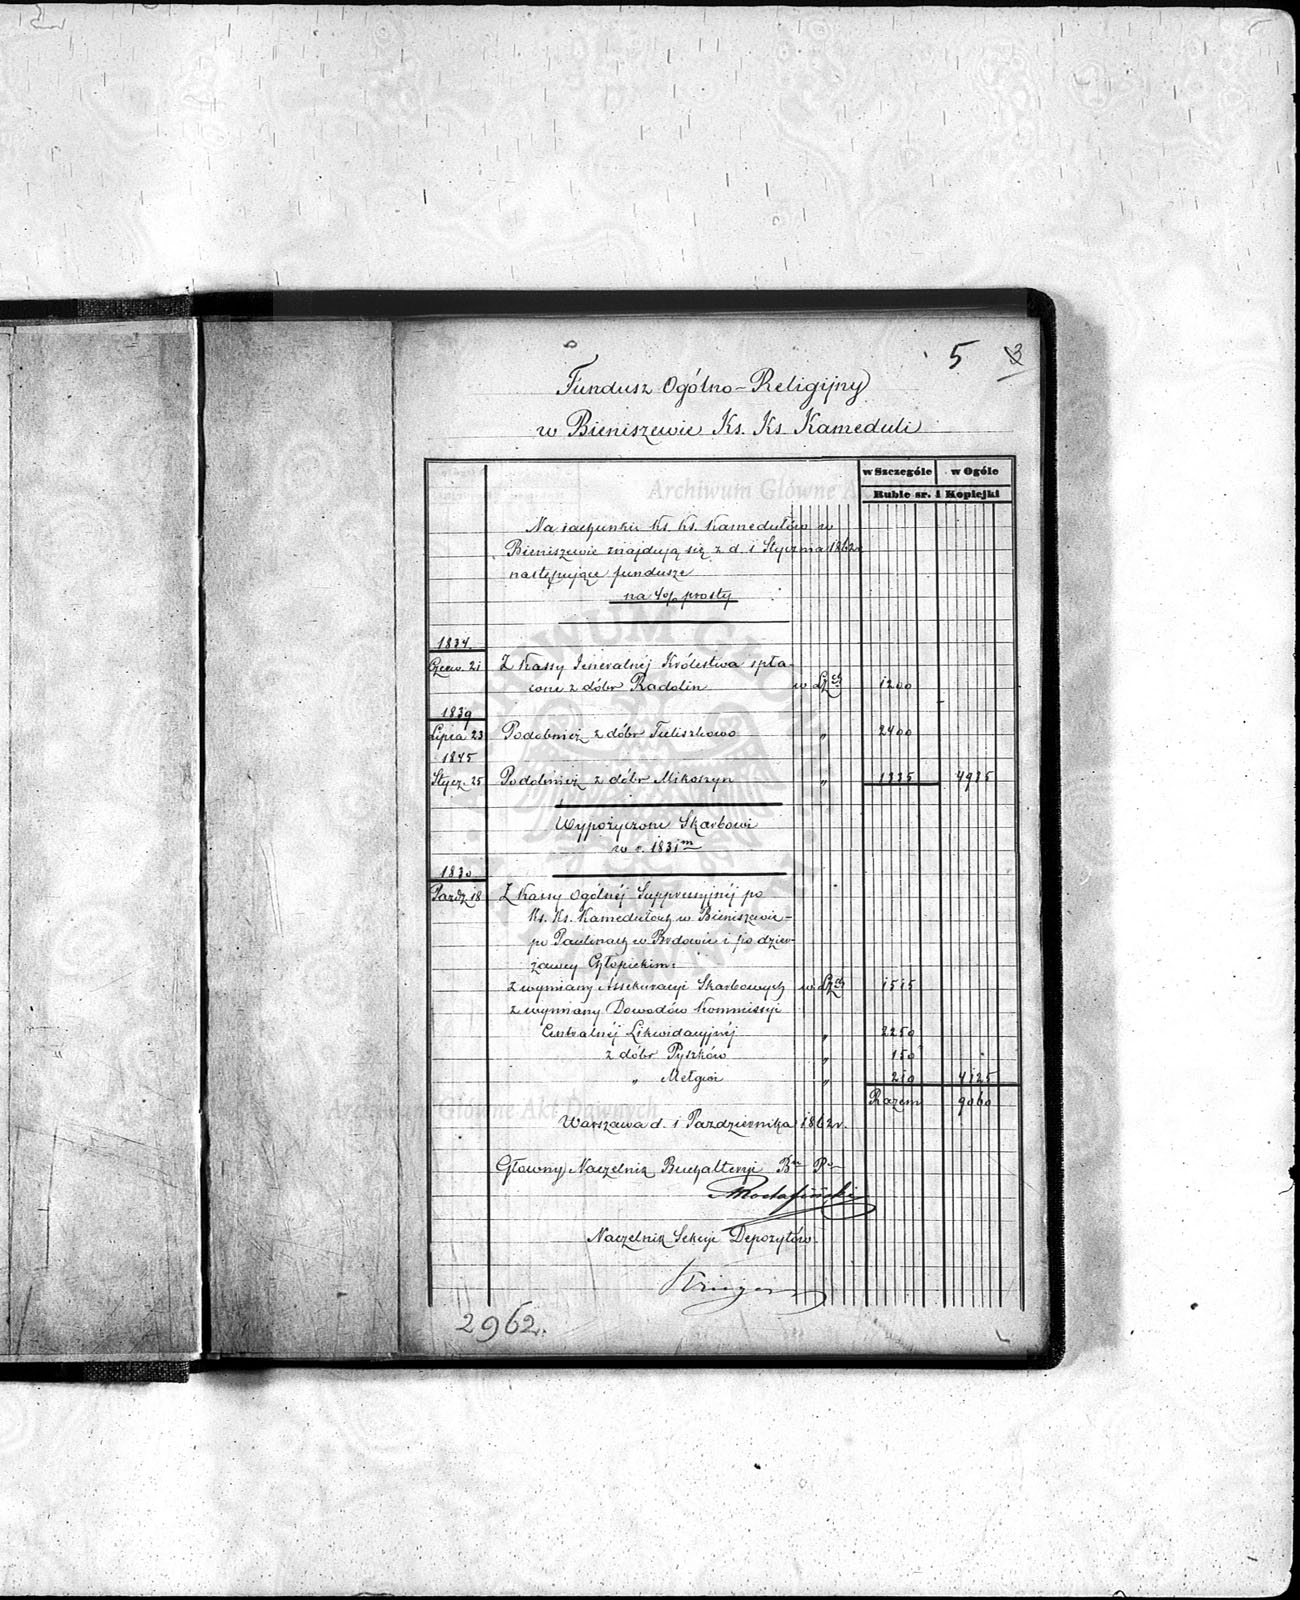 5 3
Fundusz Ogólno-Religijny
w Bieniszewie Ks. Ks Kameduli
w Szczególe w Ogóle
Rubie sr. i Kopiejki
Na rachunku Ks. Ks. Kamedułów w
Bieniszewie znajdują się z d. 1 Stycznia 1862 r
następujące fundusze
na 4% prosty
1834.
Czerw. 21 Z Kassy Jeneralnéj Królestwa spła-
cone z dóbr Radolin w 1200
1839
Lipca 23 Podobnież z dóbr Tuliszkowo " 2400
1845
Stycz. 25 Podobnież z dóbr Mikorzyn " 1335 4935
Wypożyczone Skarbowi
w r. 1831
1830
Paźdz. 18 Z Kassy Ogólnéj Suppressyjnéj po
Ks. Ks. Kamedułach w Bieniszewie-
po Paulinach w Brdowie i po dzier-
żawcy Chłopickim:
z wymiany Assekuracyi Skarbowych w 1515
z wymiany Dowodów Kommissyi
Centralnéj Likwidacyjnéj " 2250
z dóbr Pyszków " 150
" Mełgwi " 210 4125
Razem 9060
Warszawa d. 1 Października 1862 r.
Główny Naczelnik Buchalteryi B. P.
Naczelnik Sekcyi Depozytów
2962.
Archiwum Główne Akt Dawnych